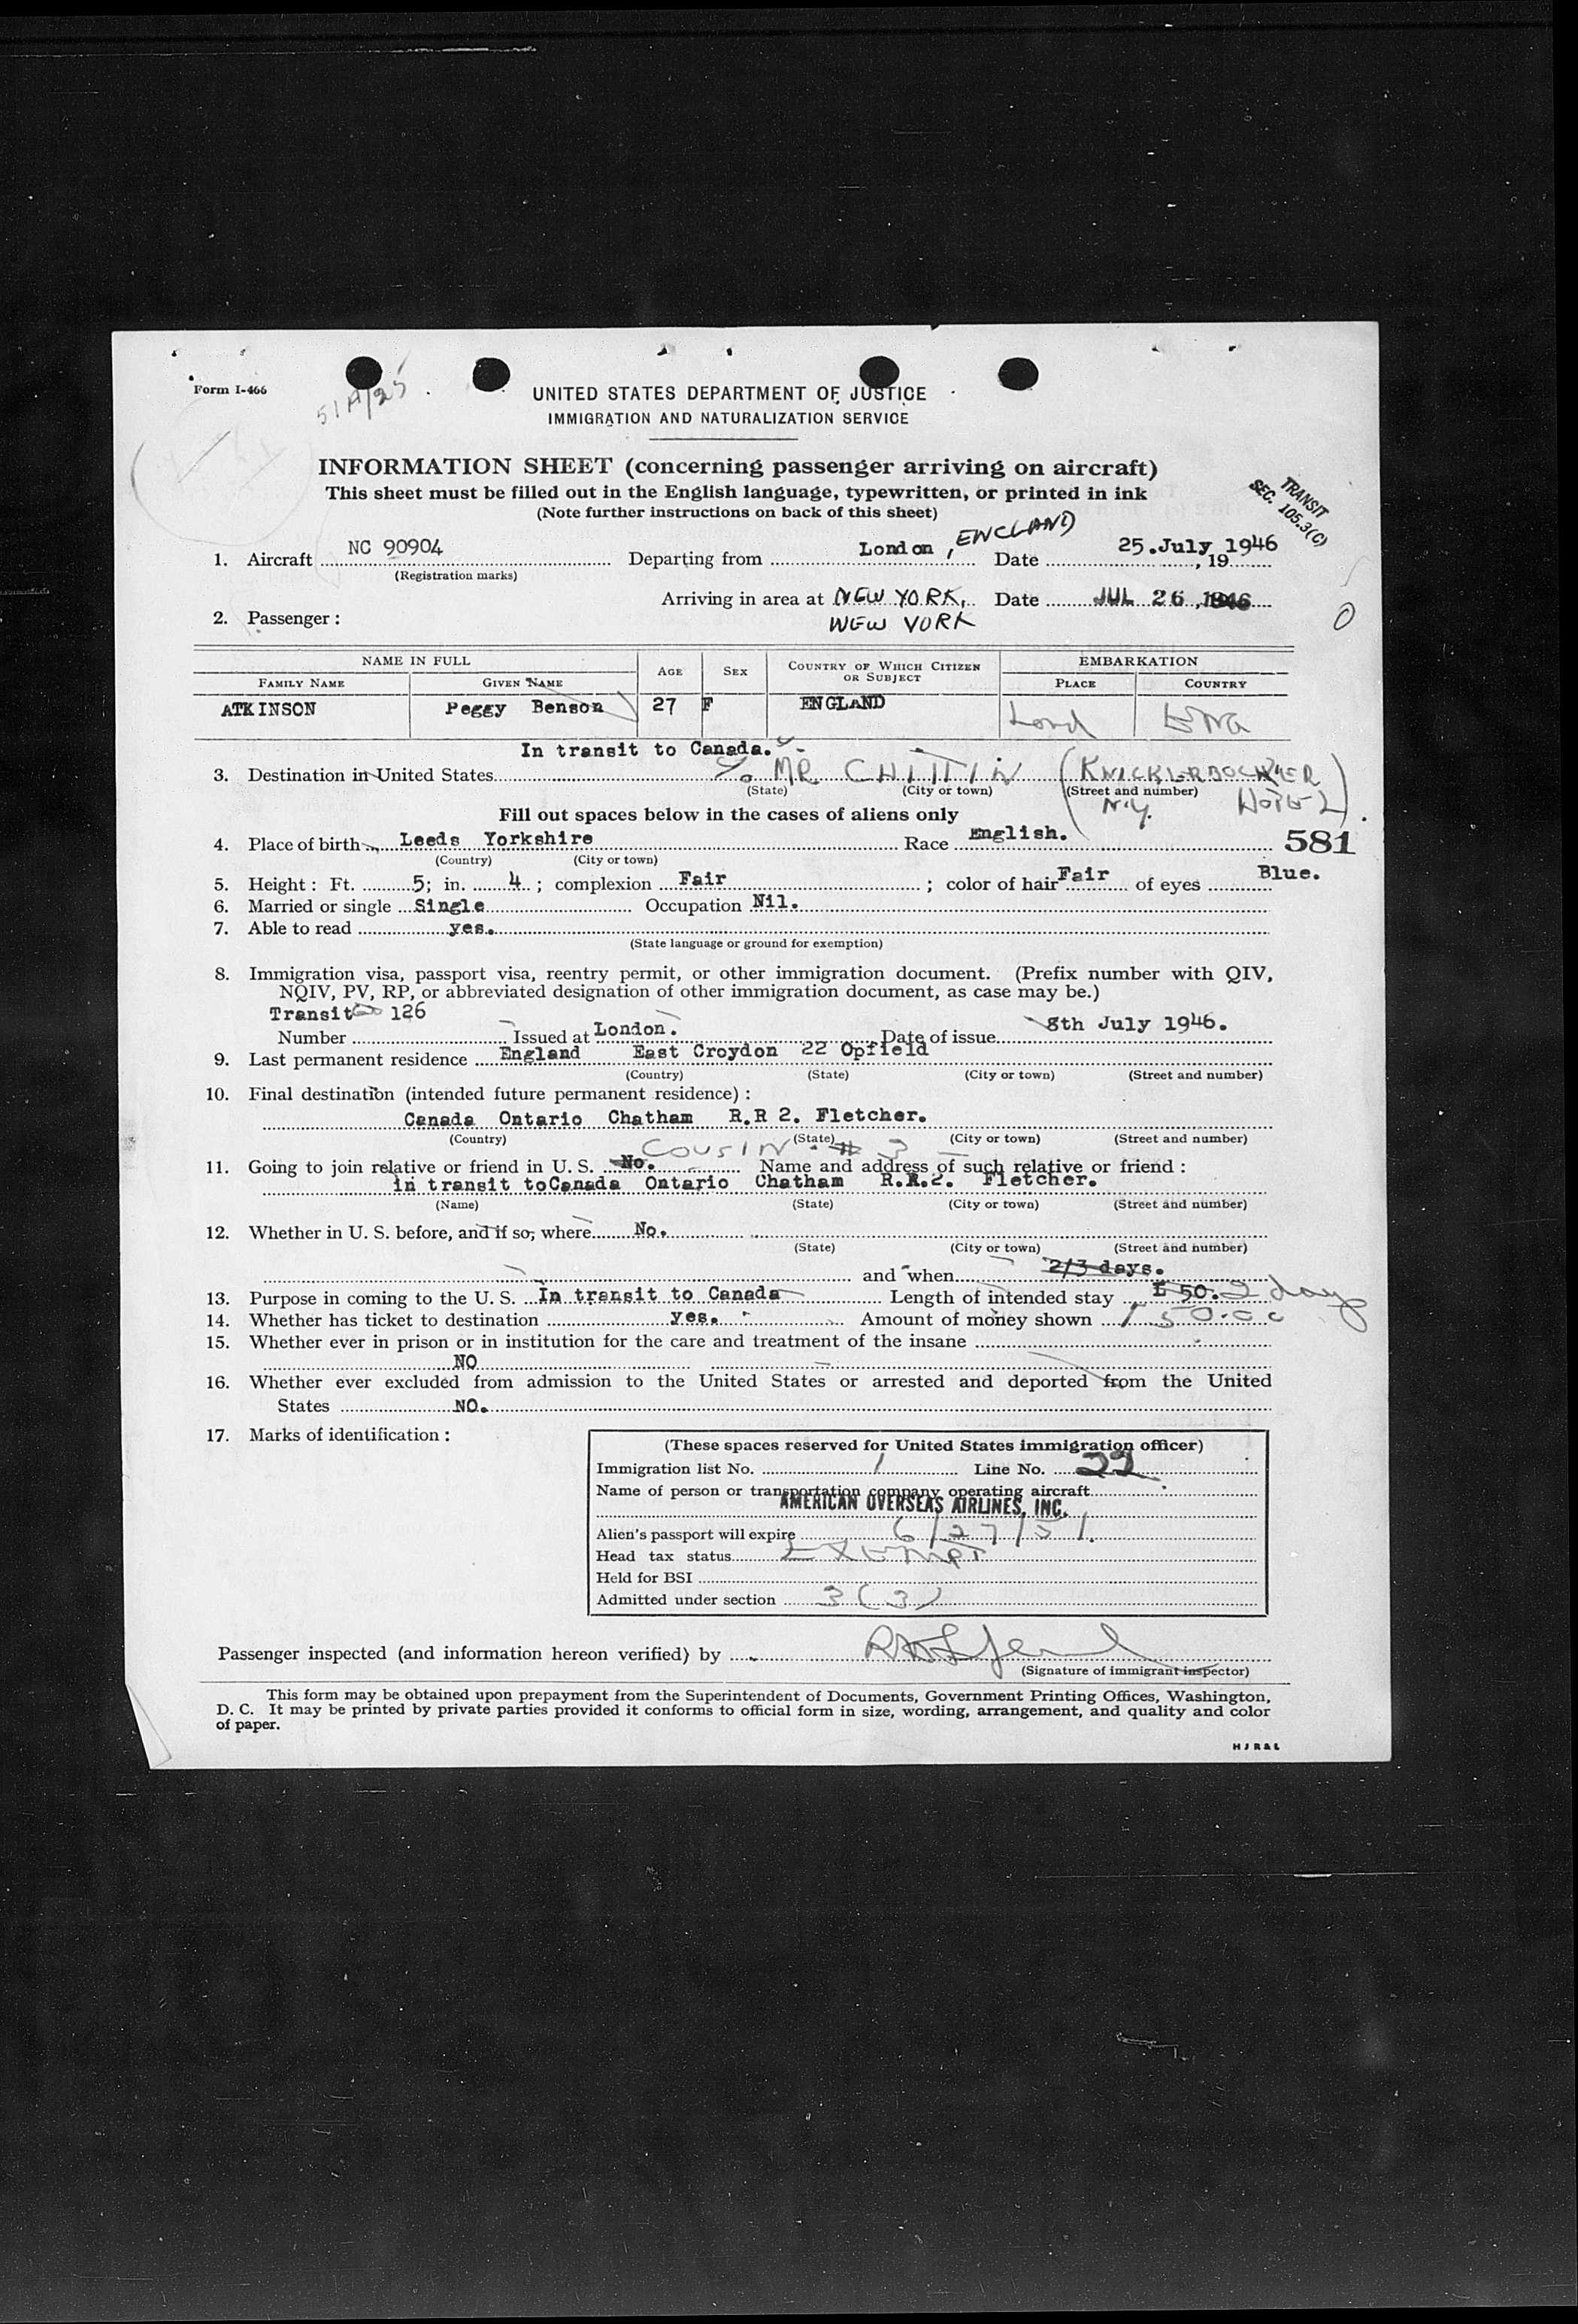 Form I-466
51A/25
UNITED STATES DEPARTMENT OF JUSTICE
IMMIGRATION AND NATURALIZATION SERVICE
INFORMATION SHEET (concerning passenger arriving on aircraft)
This sheet must be filled out in the English language, typewritten, or printed in ink
(Note further instructions on back of this sheet)
TRANSIT
SEC. 105.3(C)
1. Aircraft NC 90904 Departing from London, ENGLAND Date 25.July 1946, 19
(Registration marks)
Arriving in area at NEW YORK, Date JUL 26, 1946
NEW YORK
0
2. Passenger:
NAME IN FULL AGE SEX COUNTRY OF WHICH CITIZEN OR SUBJECT EMBARKATION
FAMILY NAME GIVEN NAME PLACE COUNTRY
ATKINSON Peggy Benson 27 F ENGLAND Lond Eng
In transit to Canada.
3. Destination in United States c/o MR CHITTIN (KNICKLERBOCKER
(State) (City or town) (Street and number)
N.Y. HOTEL)
Fill out spaces below in the cases of aliens only
581
4. Place of birth Leeds Yorkshire Race English.
(Country) (City or town)
5. Height: Ft. 5; in. 4; complexion Fair; color of hair Fair of eyes Blue.
6. Married or single Single Occupation Nil.
7. Able to read yes.
(State language or ground for exemption)
8. Immigration visa, passport visa, reentry permit, or other immigration document. (Prefix number with QIV,
NQIV, PV, RP, or abbreviated designation of other immigration document, as case may be.)
Transit 126
Number Issued at London. Date of issue 8th July 1946.
9. Last permanent residence England East Croydon 22 Opfield
(Country) (State) (City or town) (Street and number)
10. Final destination (intended future permanent residence):
Canada Ontario Chatham R.R 2. Fletcher.
(Country) (State) (City or town) (Street and number)
COUSIN # 3
11. Going to join relative or friend in U. S. No. Name and address of such relative or friend:
in transit toCanada Ontario Chatham R.R.2. Fletcher.
(Name) (State) (City or town) (Street and number)
12. Whether in U. S. before, and if so, where No.
(State) (City or town) (Street and number)
and when 2/3 days.
13. Purpose in coming to the U. S. In transit to Canada Length of intended stay £ 50. 2 days
14. Whether has ticket to destination yes. Amount of money shown 150.00
15. Whether ever in prison or in institution for the care and treatment of the insane
NO
16. Whether ever excluded from admission to the United States or arrested and deported from the United
States NO.
17. Marks of identification:
(These spaces reserved for United States immigration officer)
Immigration list No. 1 Line No. 22
Name of person or transportation company operating aircraft
AMERICAN OVERSEAS AIRLINES, INC.
Alien's passport will expire 6/27/51.
Head tax status Exempt
Held for BSI
Admitted under section 3(3)
Passenger inspected (and information hereon verified) by
(Signature of immigrant inspector)
This form may be obtained upon prepayment from the Superintendent of Documents, Government Printing Offices, Washington,
D. C. It may be printed by private parties provided it conforms to official form in size, wording, arrangement, and quality and color
of paper.
H J R & L